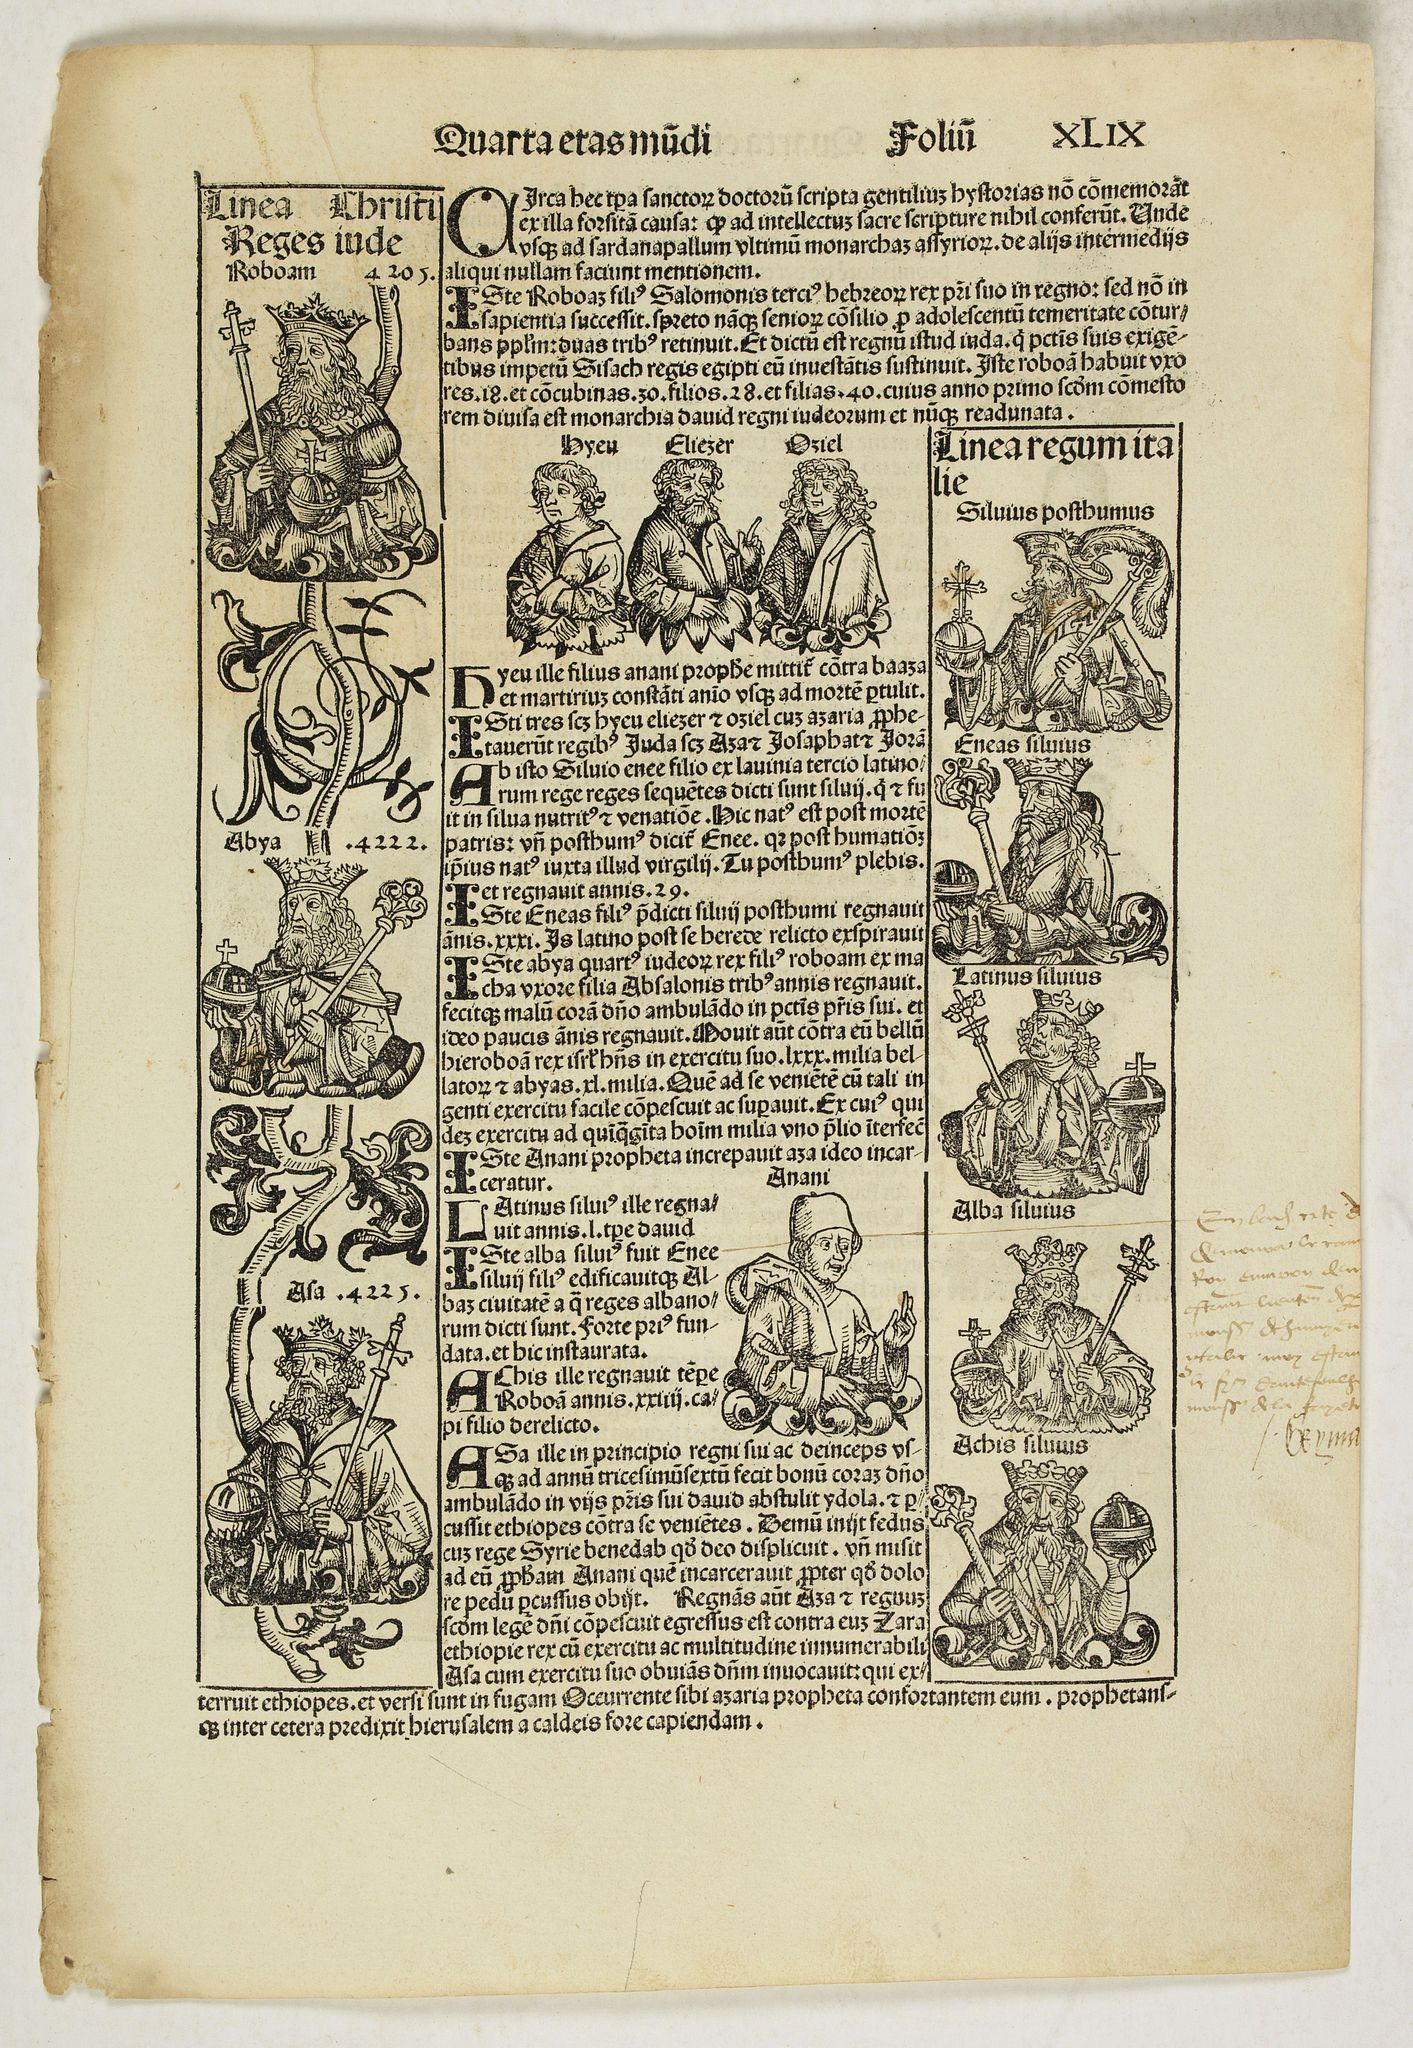 Quarta etas mũdi Foliũ XLIX
Linea Christi
Reges iude
Roboam 4205.
CIrca hec tꝑa sanctoꝝ doctorũ scripta gentiliuꝫ hystorias nõ cõmemorãt
ex illa forsitã causa: ꝙ ad intellectuꝫ sacre scripture nihil conferũt. Unde
vsqꝫ ad sardanapallum vltimũ monarchaꝫ assyrioꝝ. de alijs intermedijs
aliqui nullam faciunt mentionem.
ISte Roboaꝫ filiꝰ Salomonis terciꝰ hebreoꝝ rex pr̃i suo in regno: sed nõ in
sapientia successit. spreto nãqꝫ senioꝝ cõsilio ꝓ adolescentũ temeritate cõtur-
bans ppl̃m: duas tribꝰ retinuit. Et dictũ est regnũ istud iuda. q̃ pctĩs suis exigẽ-
tibus impetũ Sisach regis egipti eũ inuestãtis sustinuit. Iste roboã habuit vxo
res. 18. et cõcubinas. 30. filios. 28. et filias. 40. cuius anno primo scḋm cõmesto
rem diuisa est monarchia dauid regni iudeorum et nũqꝫ readunata.
Hyeu Eliezer Oziel
Linea regum ita
lie
Siluius posthumus
Hyeu ille filius anani prophe mittit̃ cõtra baaza
et martiriuꝫ constãti anĩo vsqꝫ ad mortẽ ꝑtulit.
ISti tres scꝫ hyeu eliezer ⁊ oziel cuꝫ azaria ꝓphe-
tauerũt regibꝰ Juda scꝫ Aza ⁊ Josaphat ⁊ Jorã
AB isto Siluio enee filio ex lauinia tercio latino-
rum rege reges sequẽtes dicti sunt siluij. q̃ ⁊ fu
it in silua nutritꝰ ⁊ venatiõe. Hic natꝰ est post mortẽ
patris: vñ posthumꝰ dicit̃ Enee. qꝛ post humatiõꝫ
ip̃ius natꝰ iuxta illud virgilij. Tu posthumꝰ plebis.
I et regnauit annis. 29.
ISte Eneas filiꝰ p̃dicti siluij posthumi regnauit
ãnis. xxxi. Is latino post se herede relicto exspirauit
Eneas siluius
Abya .4222.
ISte abya quartꝰ iudeoꝝ rex filiꝰ roboam ex ma
cha vxore filia Absalonis tribꝰ annis regnauit.
fecitqꝫ malũ corã dño ambulãdo in pctĩs pr̃is sui. et
ideo paucis ãnis regnauit. Mouit aũt cõtra eũ bellũ
hieroboã rex isrl̃ hñs in exercitu suo. lxxx. milia bel-
latoꝝ ⁊ abyas. xl. milia. Quẽ ad se veniẽtẽ cũ tali in
genti exercitu facile cõpescuit ac suꝑauit. Ex cuiꝰ qui
deꝫ exercitu ad quĩq̃gĩta hoĩm milia vno p̃lio ĩterfecit̃
Latinus siluius
ISte Anani propheta increpauit aza ideo incar-
ceratur.
Anani
LAtinus siluiꝰ ille regna-
uit annis. l. tꝑe dauid
Alba siluius
ISte alba siluiꝰ fuit Enee
siluij filiꝰ edificauitqꝫ Al-
baꝫ ciuitatẽ a q̃ reges albano-
rum dicti sunt. Forte priꝰ fun-
data. et hic instaurata.
Asa .4225.
AChis ille regnauit tẽꝑe
Roboã annis. xxiiij. ca-
pi filio derelicto.
Achis siluius
ASa ille in principio regni sui ac deinceps vs-
qꝫ ad annũ tricesimũsextũ fecit bonũ coraꝫ dño
ambulãdo in vijs pr̃is sui dauid abstulit ydola. ⁊ ꝑ-
cussit ethiopes cõtra se veniẽtes. Demũ inijt fedus
cuꝫ rege Syrie benedab qḋ deo displicuit. vñ misit
ad eũ ꝓpħam Anani quẽ incarcerauit ꝓpter qḋ dolo
re pedũ ꝑcussus obijt. Regnãs aũt Aza ⁊ regnuꝫ
scḋm legẽ dñi cõpescuit egressus est contra euꝫ Zara
ethiopie rex cũ exercitu ac multitudine innumerabili
Asa cum exercitu suo obuiãs dñm inuocauit: qui ex-
terruit ethiopes. et versi sunt in fugam Occurrente sibi azaria propheta confortantem eum. prophetans-
qꝫ inter cetera predixit hierusalem a caldeis fore capiendam.